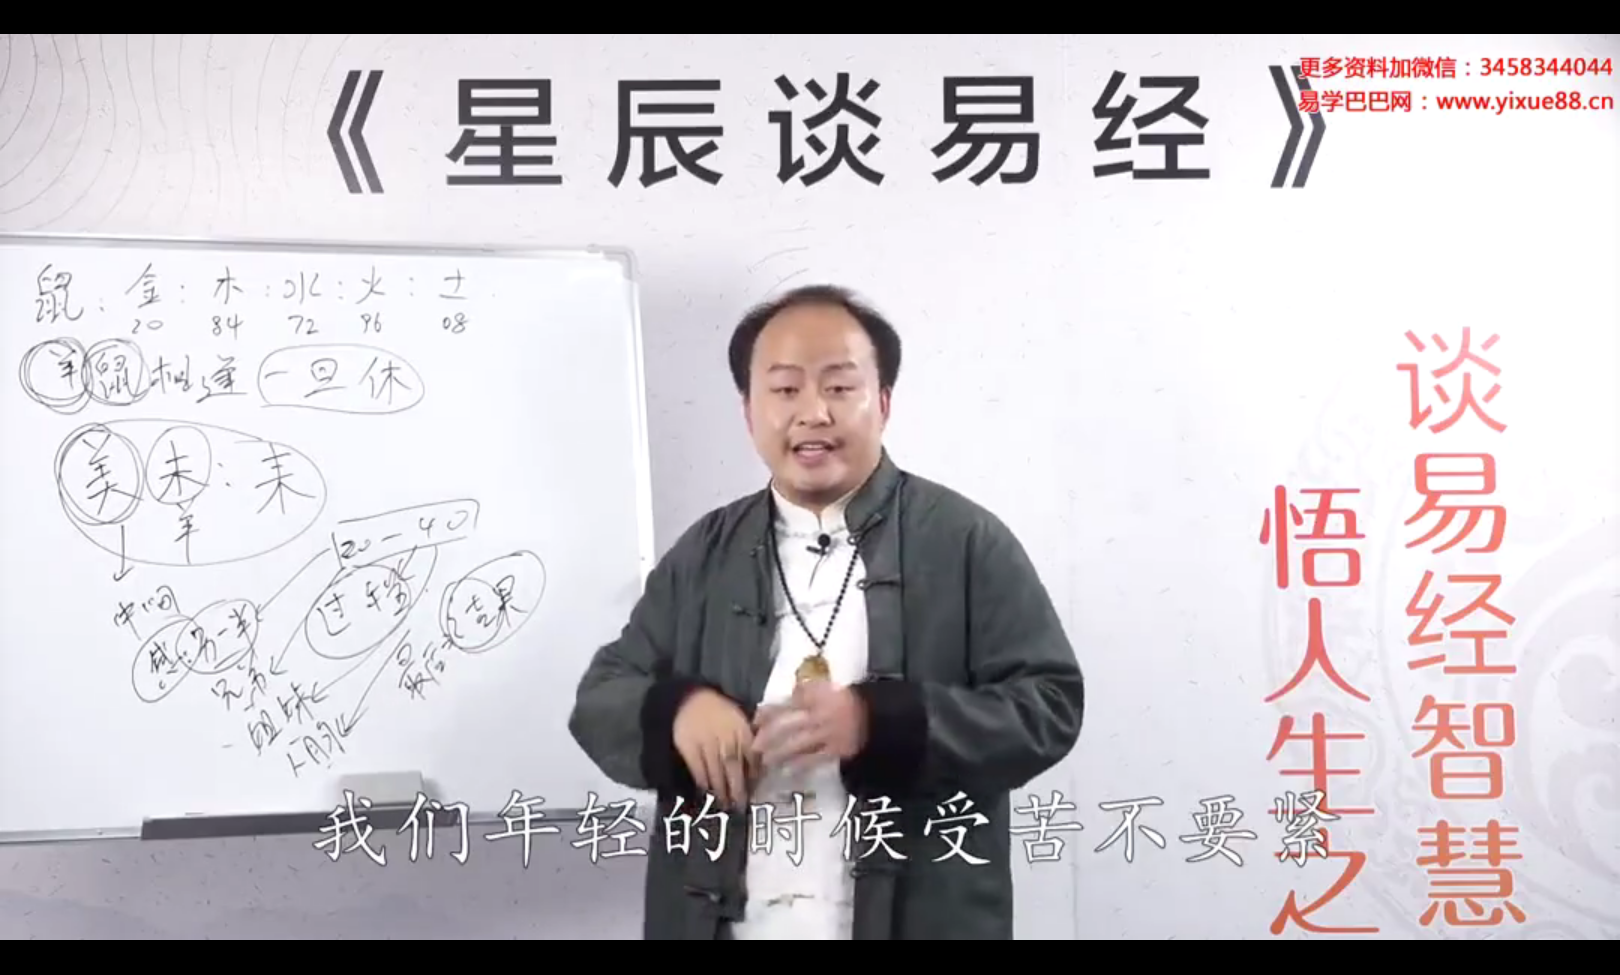 《星辰谈易经》
更多资料加微信：3458344044
易学巴巴网：www.yixue88.cn
鼠：金：木：水：火：土
20 84 72 96 08
羊鼠相逢一旦休
美未：未
羊
20-40
中间
另一半
过程
结果
兄弟
姐妹
人脉
最后
谈易经智慧
悟人生之
我们年轻的时候受苦不要紧